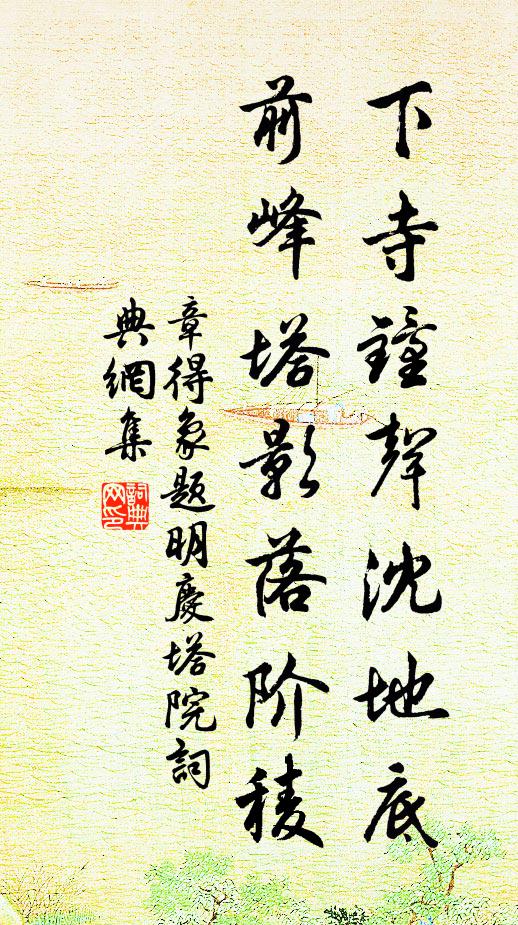 下寺鐘聲沈地底
前峰塔影落阶稜
章得象題明慶塔院詞
典網集
詞典
网印